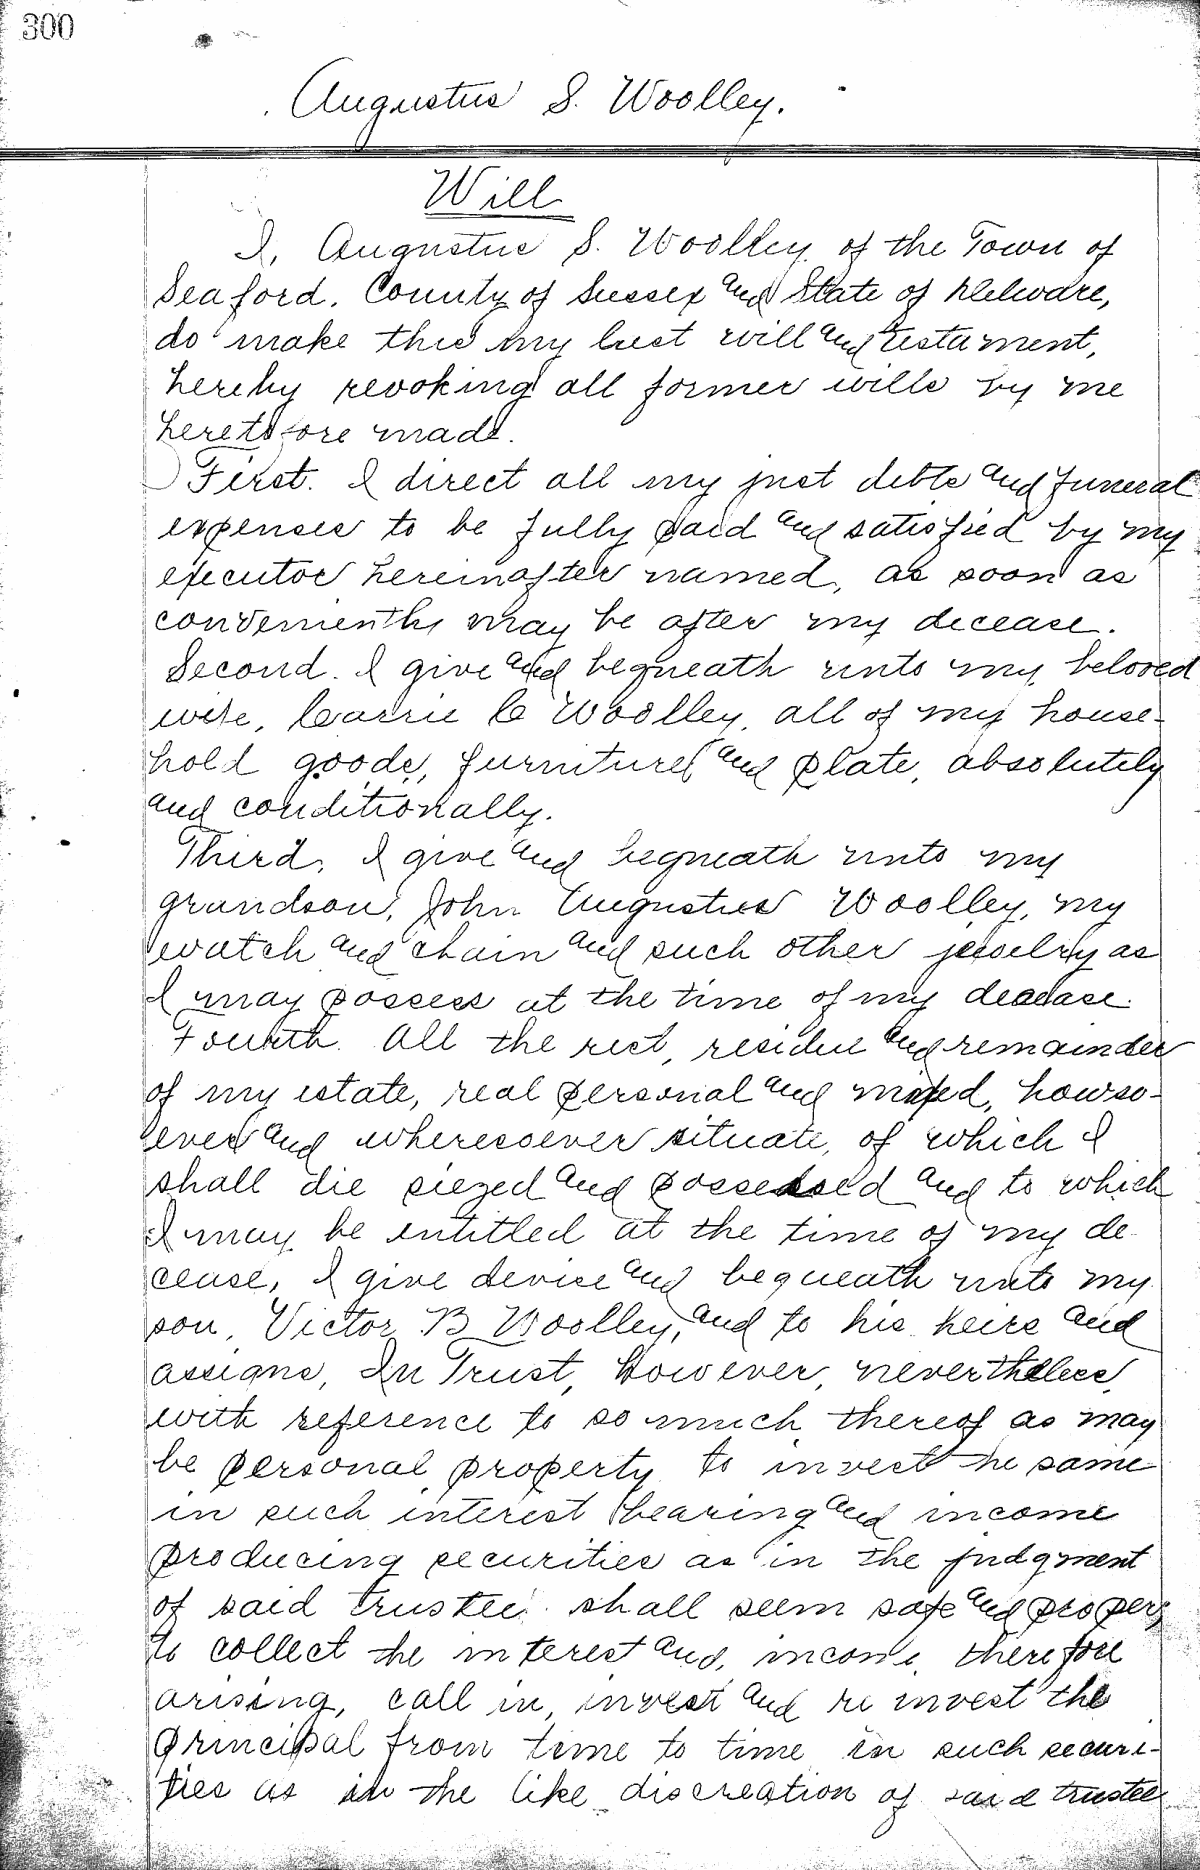 300
Augustus S. Woolley.
Will
I, Augustus S. Woolley, of the Town of
Seaford, County of Sussex and State of Delware,
do make this my last will and testament,
hereby revoking all former wills by me
heretofore made.
First. I direct all my just debts and funeral
expenses to be fully paid and satisfied by my
executor hereinafter named, as soon as
conveniently may be after my decease.
Second. I give and bequeath unto my beloved
wife, Carrie C Woolley, all of my house-
hold goods, furniture and plate, absolutely
and conditionally.
Third, I give and bequeath unto my
grandson, John Augustus Woolley, my
watch and chain and such other jewelry as
I may possess at the time of my decease.
Fourth. All the rest, residue and remainder
of my estate, real personal and mixed, howso-
ever and wheresoever situate, of which I
shall die siezed and possessed and to which
I may be entitled at the time of my de
cease, I give devise and bequeath unto my
son, Victor B Woolley, and to his heirs and
assigns, In Trust, However, nevertheless,
with reference to so much thereof as may
be personal property to invest he same
in such interest bearing and income
producing securities as in the judgment
of said trustee shall seem safe and proper,
to collect the interest and, income, therefore
arising, call in, invest and re invest the
principal from time to time in such securi-
ties as in the like discreation of said trustee